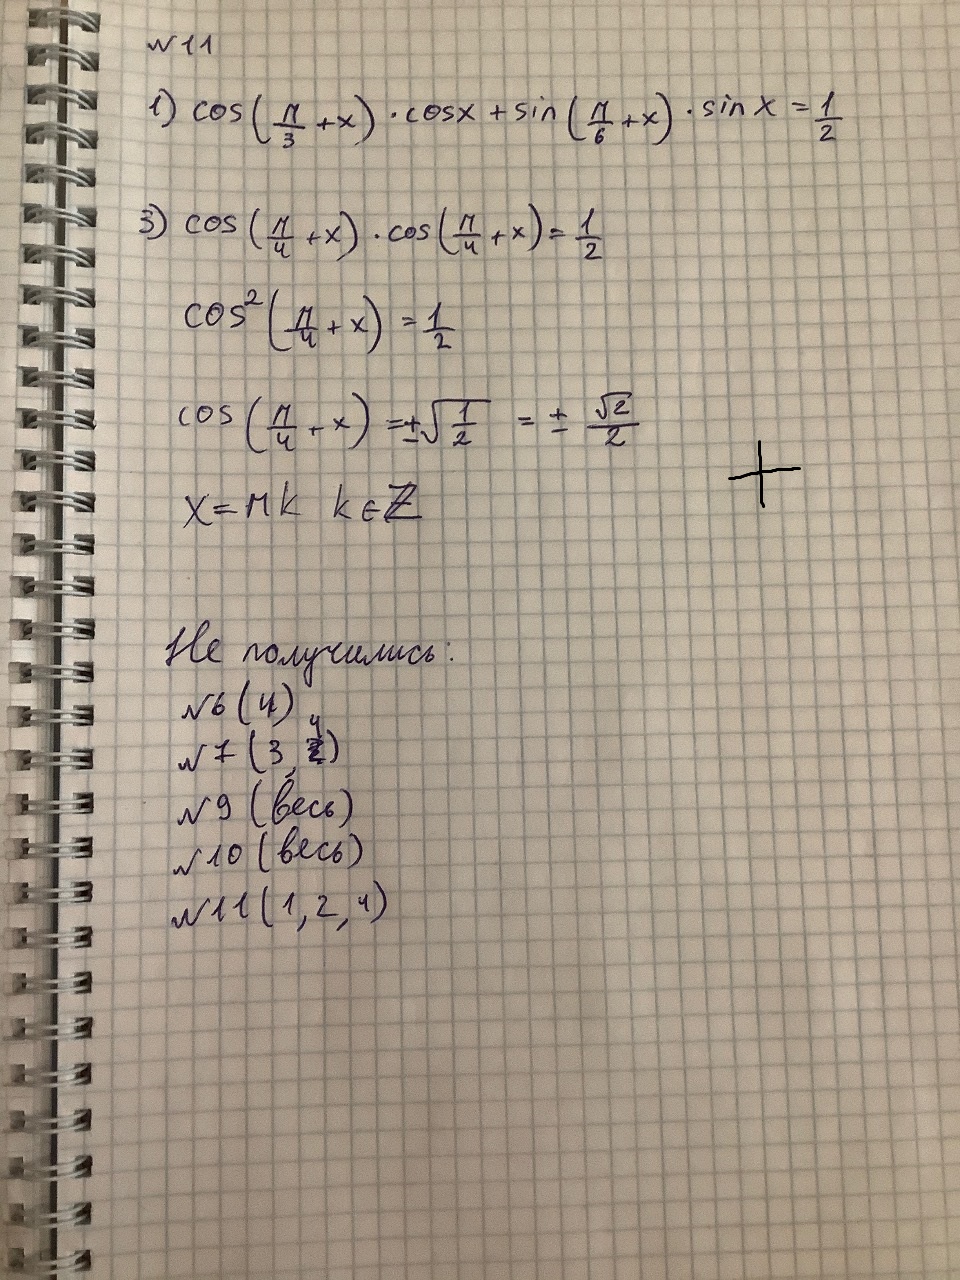 №11
1) cos(π/3 + x) · cosx + sin(π/6 + x) · sin x = 1/2
3) cos(π/4 + x) · cos(π/4 + x) = 1/2
cos²(π/4 + x) = 1/2
cos(π/4 + x) = ±√(1/2) = ± √2/2
+
x = πk k ∈ Z
Не получились:
№6 (4)
№7 (3, 4)
№9 (весь)
№10 (весь)
№11 (1, 2, 4)